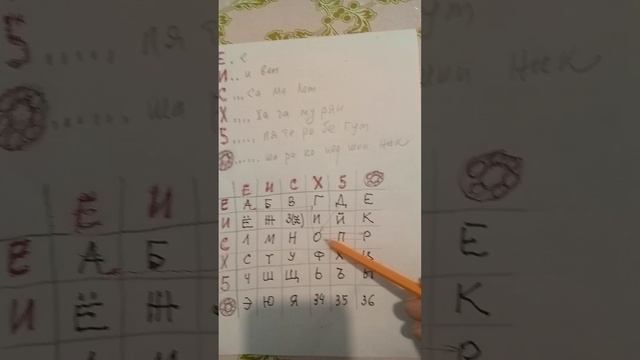 Е . е
И .. и вет
С ... са ме лет
Х .... ха га му
5 ..... пя те ро бе гум
...... шо ро ко
Е И С Х 5
Е А Б В Г Д Е
И Ё Ж З(Z) И Й К
С Л М Н О П Р
Х С Т У Ф Х
5 Ч Ш Щ Ь Ъ Ы
Э Ю Я 34 35 36